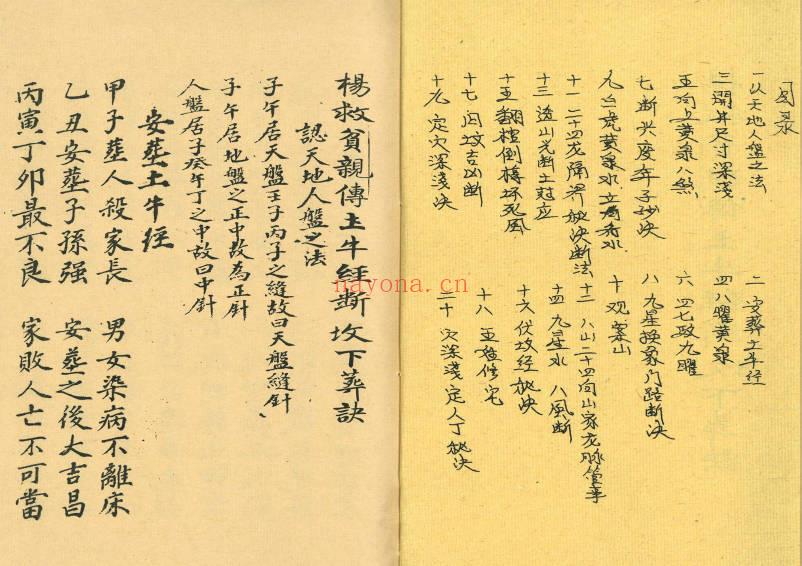 目录
一 认天地人盘之法
二 安葬土牛经
三 開井尺寸深淺
四 八曜黄泉
五 向上黄泉八煞
六 四七政九曜
七 断兴废年子妙决
八 九星
门路断决
九 白虎黄泉水
十 观案山
十一 二十四龙
秘决断法
十二 八山二十四向山家龙脉管事
十三 透山光断土冠应
十四 九星水 八風断
十五 翻棺倒椁坏死風
十六 伏坟经秘决
十七 闪坟吉凶断
十八
宅
十九 定穴深淺决
二十 穴深淺定人丁秘决
楊救貧親傳土牛經斷坟下葬訣
認天地人盤之法
子午居天盤壬子丙子之縫故曰天盤縫針
子午居地盤之正中故為正針
人盤居子癸午丁之中故曰中針
安葬土牛經
甲子葬人殺家長 男女染病不離床
乙丑安葬子孫强 安葬之後大吉昌
丙寅丁卯最不良 家敗人亡不可當
nayona.cn